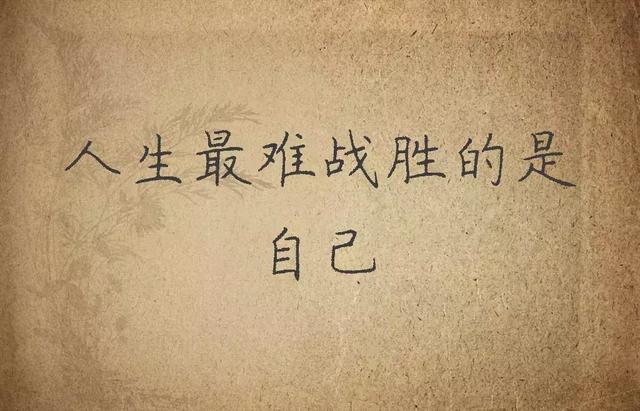 人生最难战胜的是
自己